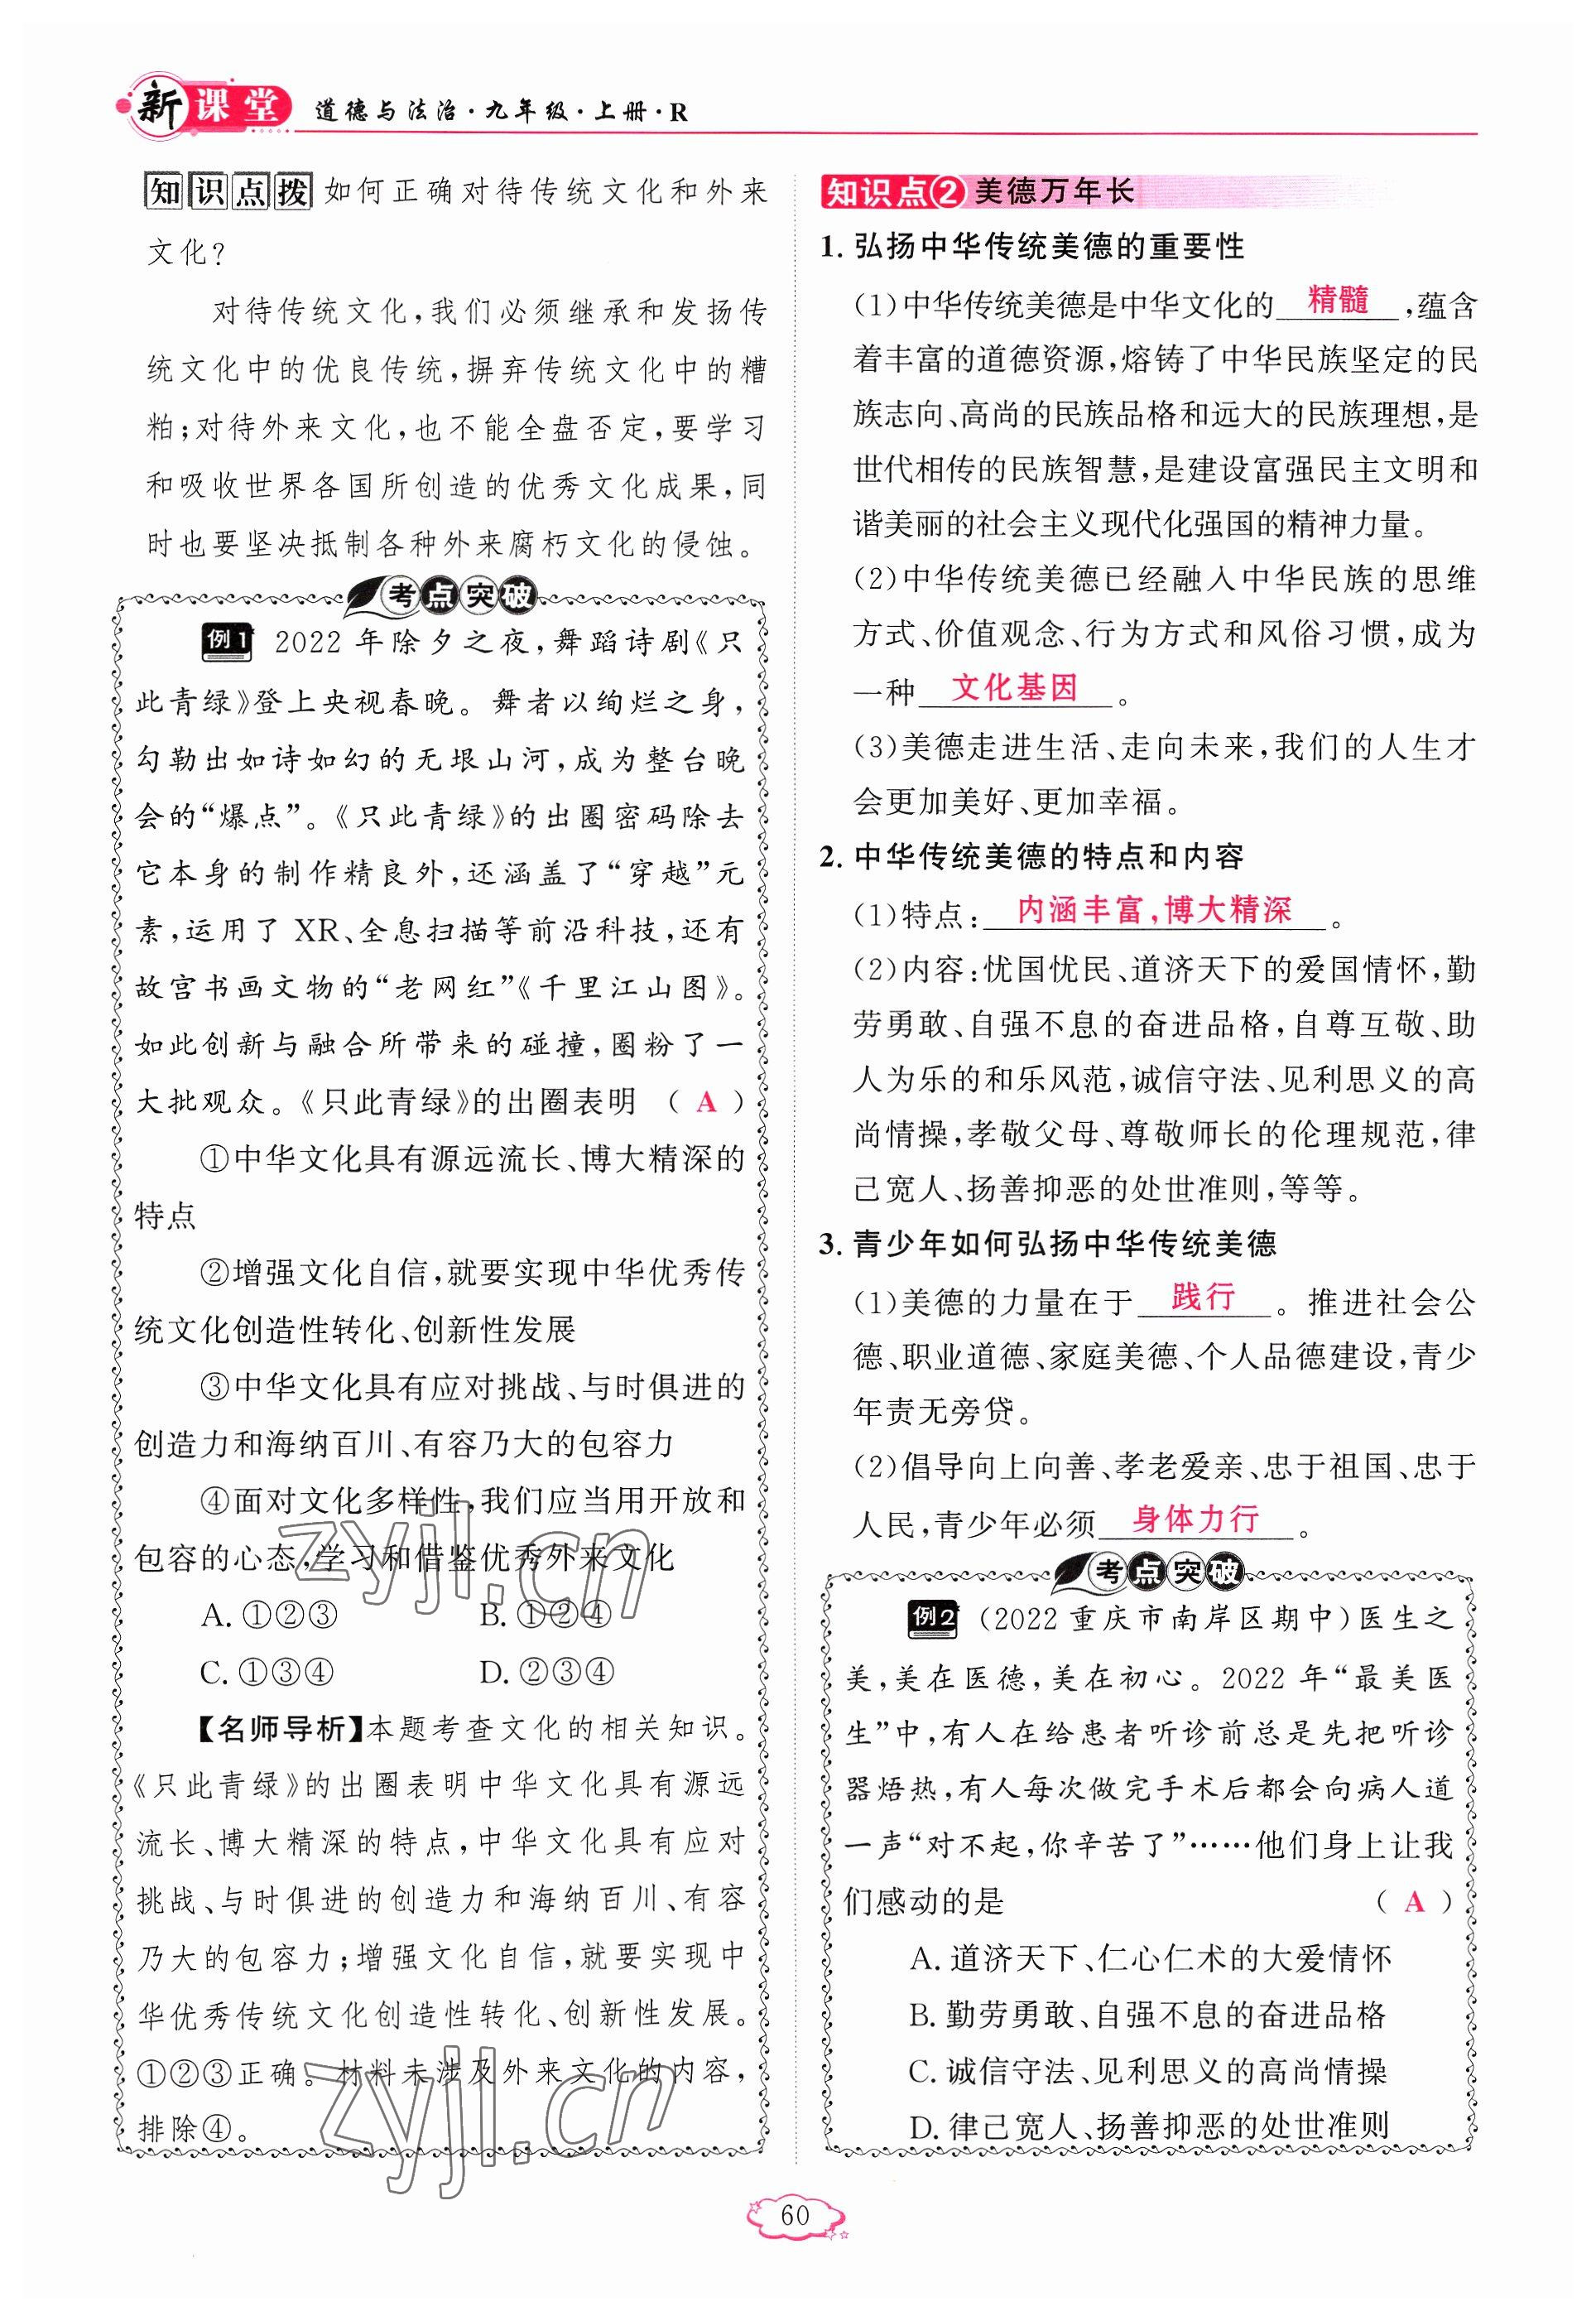 新课堂 道德与法治·九年级·上册·R
知识点拨 如何正确对待传统文化和外来
文化？
对待传统文化，我们必须继承和发扬传
统文化中的优良传统，摒弃传统文化中的糟
粕；对待外来文化，也不能全盘否定，要学习
和吸收世界各国所创造的优秀文化成果，同
时也要坚决抵制各种外来腐朽文化的侵蚀。
考点突破
例1 2022年除夕之夜，舞蹈诗剧《只
此青绿》登上央视春晚。舞者以绚烂之身，
勾勒出如诗如幻的无垠山河，成为整台晚
会的“爆点”。《只此青绿》的出圈密码除去
它本身的制作精良外，还涵盖了“穿越”元
素，运用了 XR、全息扫描等前沿科技，还有
故宫书画文物的“老网红”《千里江山图》。
如此创新与融合所带来的碰撞，圈粉了一
大批观众。《只此青绿》的出圈表明 （ A ）
①中华文化具有源远流长、博大精深的
特点
②增强文化自信，就要实现中华优秀传
统文化创造性转化、创新性发展
③中华文化具有应对挑战、与时俱进的
创造力和海纳百川、有容乃大的包容力
④面对文化多样性，我们应当用开放和
包容的心态，学习和借鉴优秀外来文化
A. ①②③ B. ①②④
C. ①③④ D. ②③④
【名师导析】本题考查文化的相关知识。
《只此青绿》的出圈表明中华文化具有源远
流长、博大精深的特点，中华文化具有应对
挑战、与时俱进的创造力和海纳百川、有容
乃大的包容力；增强文化自信，就要实现中
华优秀传统文化创造性转化、创新性发展。
①②③正确。材料未涉及外来文化的内容，
排除④。
知识点② 美德万年长
1. 弘扬中华传统美德的重要性
(1)中华传统美德是中华文化的 精髓 ，蕴含
着丰富的道德资源，熔铸了中华民族坚定的民
族志向、高尚的民族品格和远大的民族理想，是
世代相传的民族智慧，是建设富强民主文明和
谐美丽的社会主义现代化强国的精神力量。
(2)中华传统美德已经融入中华民族的思维
方式、价值观念、行为方式和风俗习惯，成为
一种 文化基因 。
(3)美德走进生活、走向未来，我们的人生才
会更加美好、更加幸福。
2. 中华传统美德的特点和内容
(1)特点： 内涵丰富，博大精深 。
(2)内容：忧国忧民、道济天下的爱国情怀，勤
劳勇敢、自强不息的奋进品格，自尊互敬、助
人为乐的和乐风范，诚信守法、见利思义的高
尚情操，孝敬父母、尊敬师长的伦理规范，律
己宽人、扬善抑恶的处世准则，等等。
3. 青少年如何弘扬中华传统美德
(1)美德的力量在于 践行 。推进社会公
德、职业道德、家庭美德、个人品德建设，青少
年责无旁贷。
(2)倡导向上向善、孝老爱亲、忠于祖国、忠于
人民，青少年必须 身体力行 。
考点突破
例2 （2022重庆市南岸区期中）医生之
美，美在医德，美在初心。2022年“最美医
生”中，有人在给患者听诊前总是先把听诊
器焐热，有人每次做完手术后都会向病人道
一声“对不起，你辛苦了”……他们身上让我
们感动的是 （ A ）
A. 道济天下、仁心仁术的大爱情怀
B. 勤劳勇敢、自强不息的奋进品格
C. 诚信守法、见利思义的高尚情操
D. 律己宽人、扬善抑恶的处世准则
zyjl.cn
zyjl.cn
60